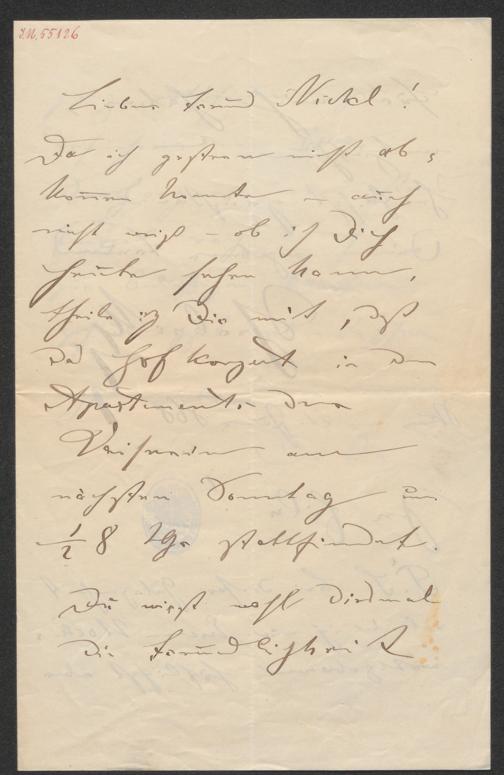 I.N. 55126
Lieber Freund Nickl!
Da ich gestern nicht ab,
komen konnte – auch
nicht weiß – ob ich Dich
heute sehen kann,
theile ich Dir mit, daß
das Hofkonzert in den
Apartements der
Kaiserin am
nächsten Sonntag um
½ 8 Uhr stattfindet.
Du wirst wohl diesmal
die Freundlichkeit